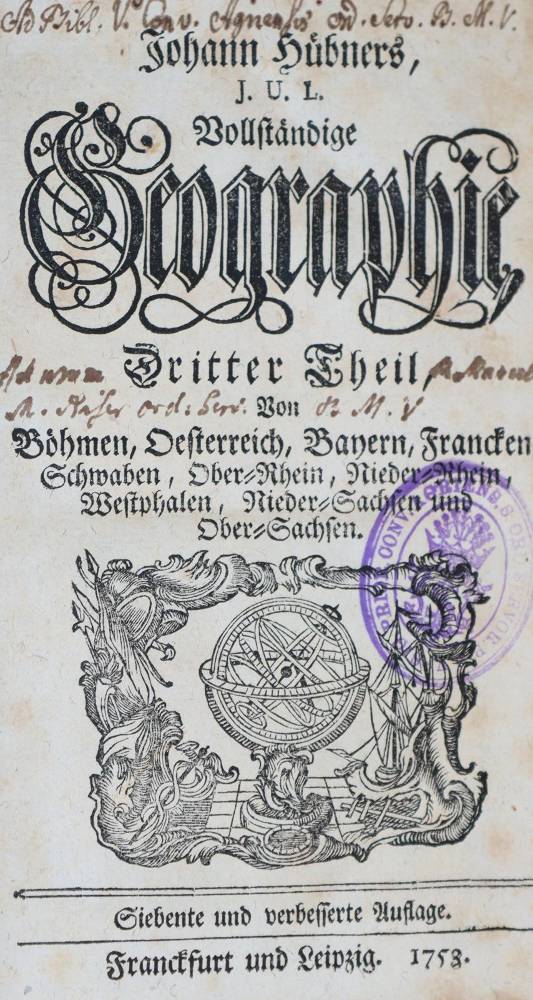 Ad Bibl. V. Conv. Agnensis Ord. Serv. B. M. V.
Johann Hübners,
J. U. L.
Vollständige
Geographie,
Dritter Theil,
Von B. M. V
Böhmen, Oesterreich, Bayern, Francken
Schwaben, Ober-Rhein, Nieder-Rhein,
Westphalen, Nieder-Sachsen und
Ober-Sachsen.
Siebente und verbesserte Auflage.
Franckfurt und Leipzig. 1753.